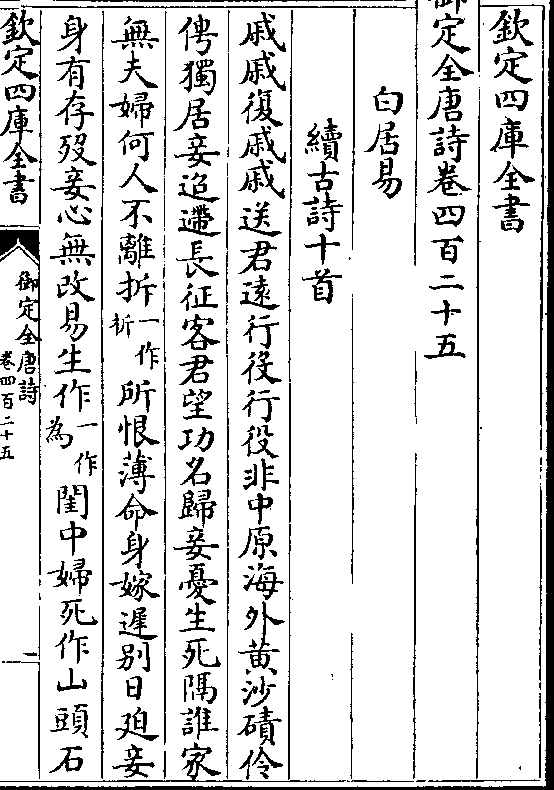 欽定四庫全書
御定全唐詩卷四百二十五
白居易
續古詩十首
戚戚復戚戚送君遠行役行役非中原海外黄沙磧伶
俜獨居妾迢遰長征客君望功名歸妾憂生死隔誰家
無夫婦何人不離折一作析所恨薄命身嫁遲别日廹妾
身有存殁妾心無改易生作一作為閨中婦死作山頭石
欽定四庫全書
御定全唐詩
卷四百二十五
一